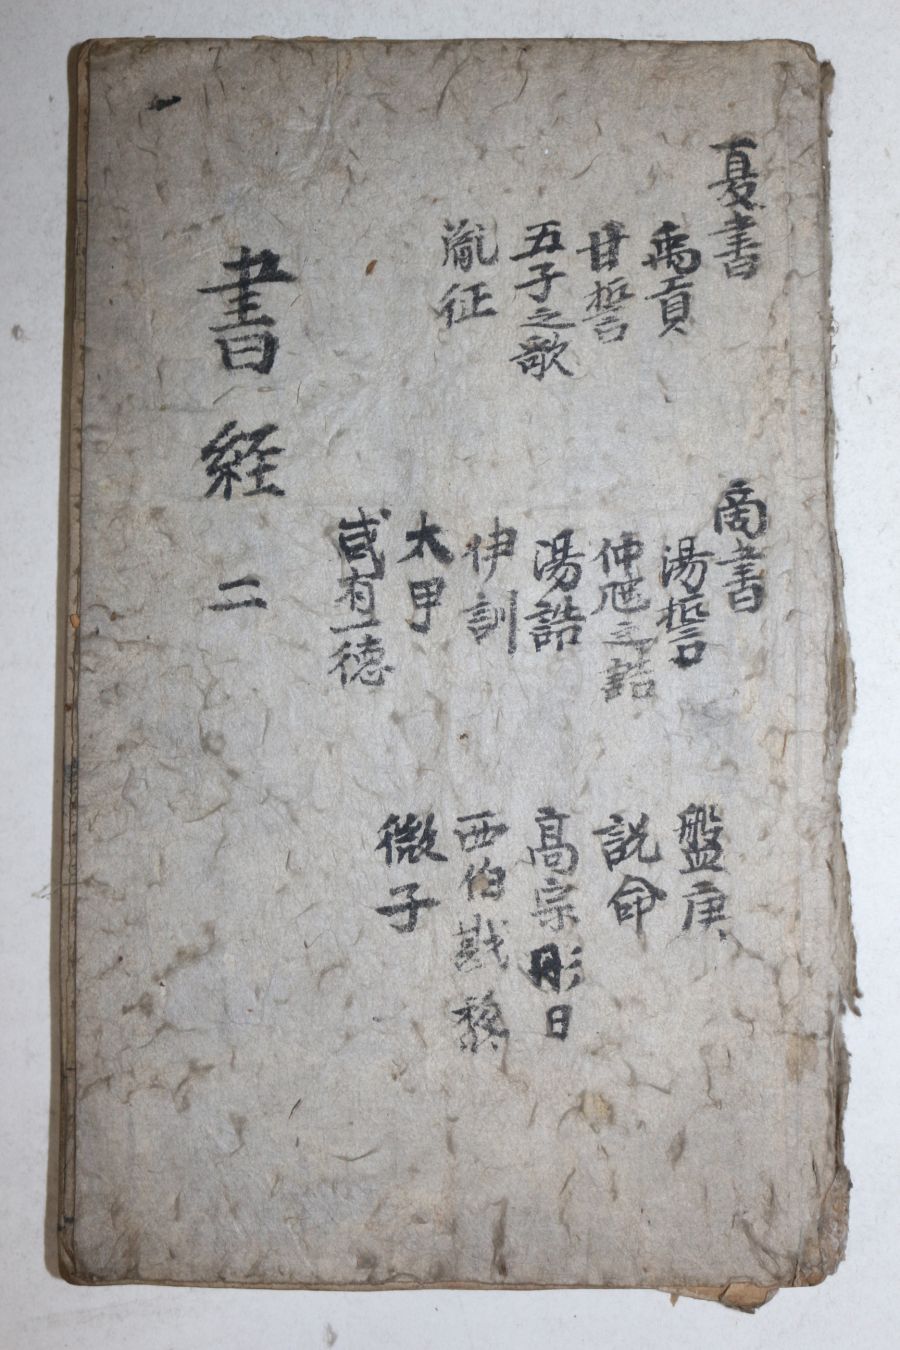 夏書
禹貢
甘誓
五子之歌
胤征
商書
湯誓
仲虺之誥
湯誥
伊訓
太甲
咸有一德
盤庚
説命
高宗肜日
西伯戡黎
微子
書経 二